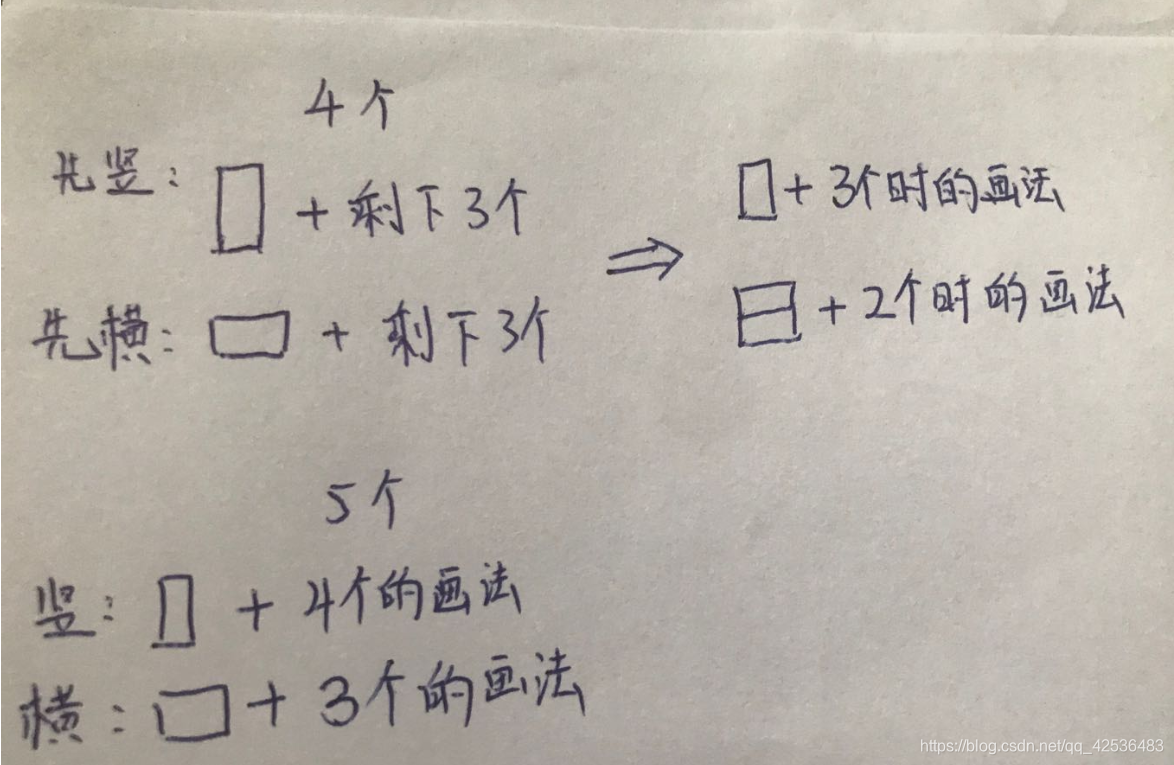 4个
先竖: + 剩下3个
先横: + 剩下3个
⇒
+ 3个时的画法
+ 2个时的画法
5个
竖: + 4个的画法
横: + 3个的画法
https://blog.csdn.net/qq_42536483